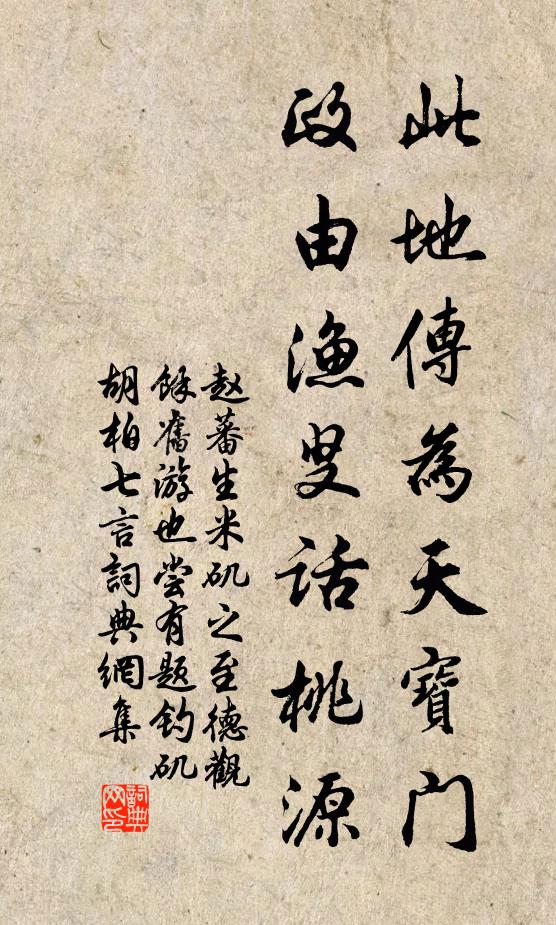 此地傳為天寶門
段由漁叟話桃源
赵蕃生米矶之至德觀
餘舊游也尝有题钓矶
胡柏七言詞典網集
詞典
网印